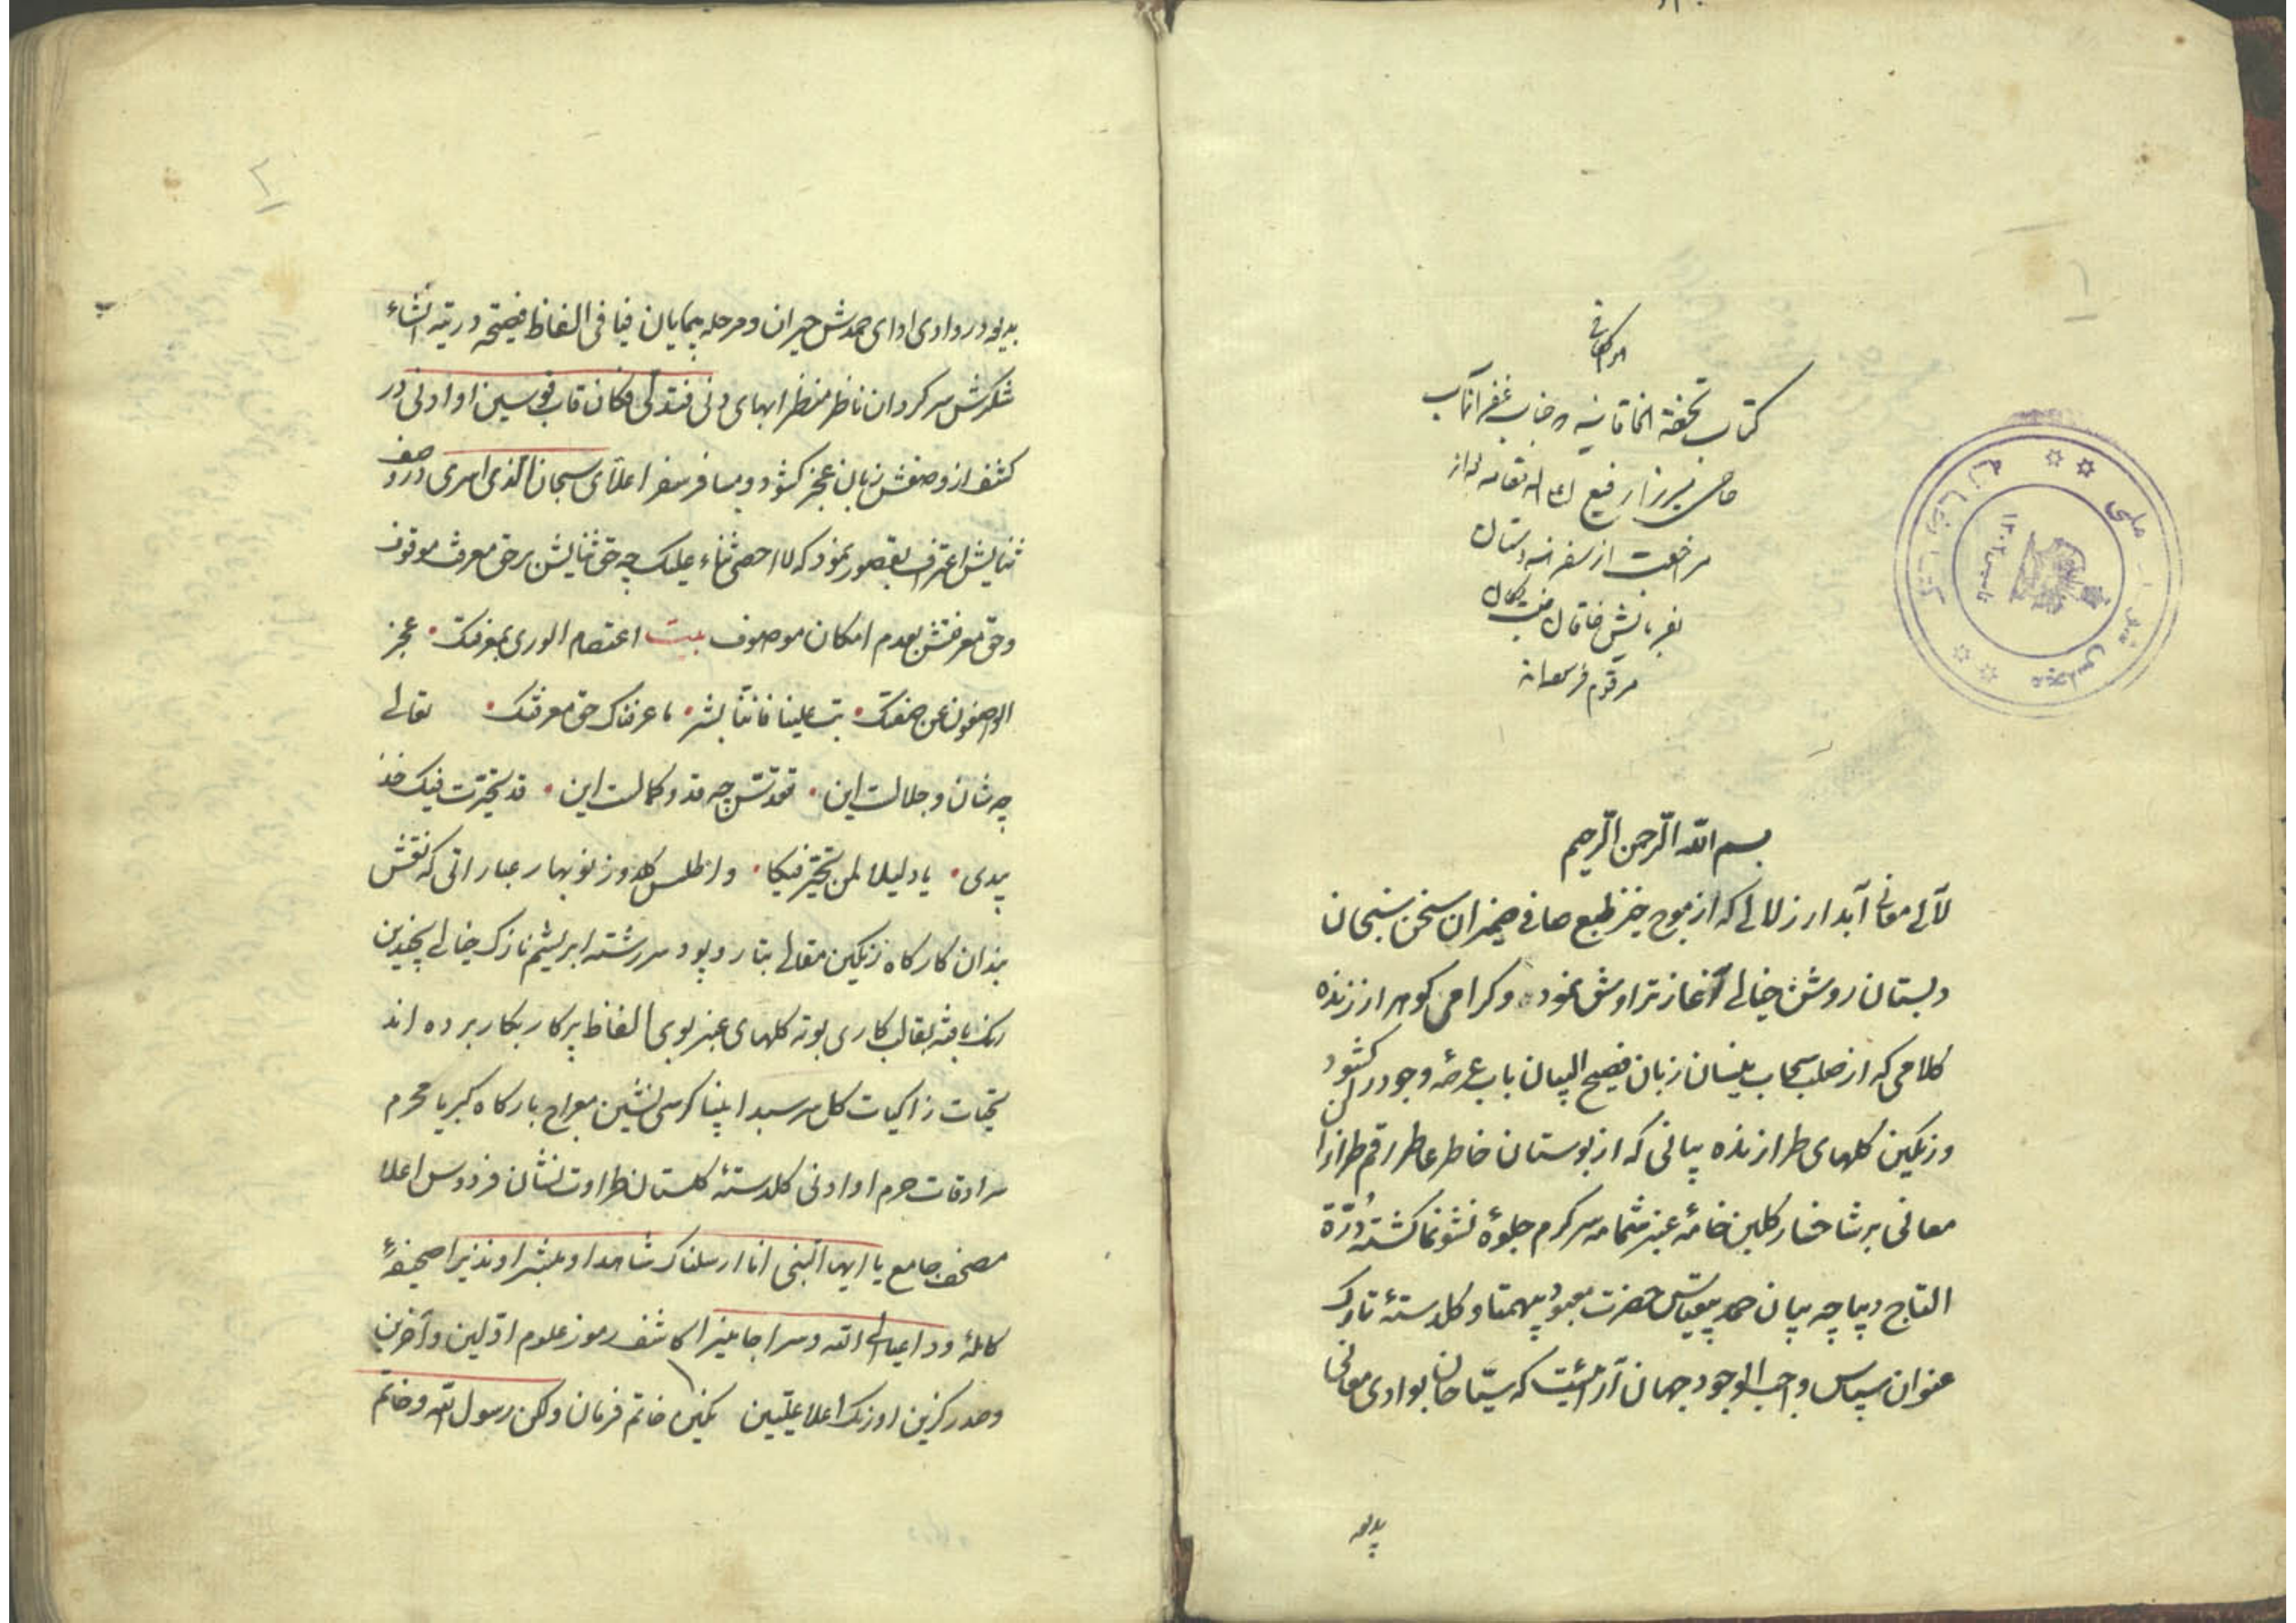 کتاب تحفة الخاقانیه
حاجی میرزا رفیع
مراجعت از سفر هندوستان
مرقوم فرموده
کتابخانه مجلس شورای ملی
۱۳۰۲
بسم الله الرحمن الرحیم
لآلی معانی آبدار زلالی که از موج خیز طبع صافی ضمیران سخن سنجان
دبستان روشن خیالی آغاز تراوش نموده و کرامی کوهر ارزنده
کلامی که از صلب سحاب نیسان زبان فصیح البیان باب عرصهٔ وجود در کشود
ورنکین کلهای طرازنده بیانی که از بوستان خاطر عاطر رقم طرازان
معانی بر شاخسار کلبن خامهٔ عنبر شمامه سرکرم جلوهٔ نشو نما کشته دُرّة
التاج دیباچه بیان حمد بیقیاس حضرت معبود بیهمتا و کلدستهٔ تارک
عنوان سپاس واجب الوجود جهان آرائیست که سیّاحان بوادی معانی
بدیعه
۲
بدیعه در وادی ادای حمدش حیران و مرحله پیمایان فیافی الفاظ فصیحه در تیه انشاء
شکرش سرکردان ناظر منظر ابهای دنی فتدلی فکان قاب قوسین او ادنی در
کشف از وصفش زبان عجز کشود و مسافر سفر اعلای سبحان الذی اسری در وصف
ثنایش اعتراف بقصور نمود که لا احصی ثناء علیک چه حق ثنایش بر حق معرفت موقوف
وحق معرفتش بعدم امکان موصوف بیت اعتصام الوری بمغفرتک • عجز
الواصفون عن صفتک • تب علینا فاننا بشر • ما عرفناک حق معرفتک • تعالی
چه شان و جلالست این • تقدس چه قد و کمالست این • قد تحیرت فیک خذ
بیدی • یا دلیلا لمن تحیّر فیکا • واطلس کلدوز نوبهار عباراتی که نقش
بندان کارکاه رنکین مقالی بتار و پود سررشته ابریشم نازک خیالی بچندین
رنک بافته بقالب کاری بوته کلهای عنبربوی الفاظ پرکار بکار برده اند
تحیات زاکیات کل سرسبد انبیا کرسی نشین معراج بارکاه کبریا محرم
سرادقات حرم او ادنی کلدستهٔ کلستان طراوت نشان فردوس اعلا
مصحف جامع یا ایها النبی انا ارسلناک شاهدا و مبشرا و نذیرا صحیفهٔ
کاملهٔ وداعیا الی الله وسراجا منیرا کاشف رموز علوم اوّلین و آخرین
وصدر کزین اورنک اعلا علیّین نکین خاتم فرمان ولکن رسول الله وخاتم